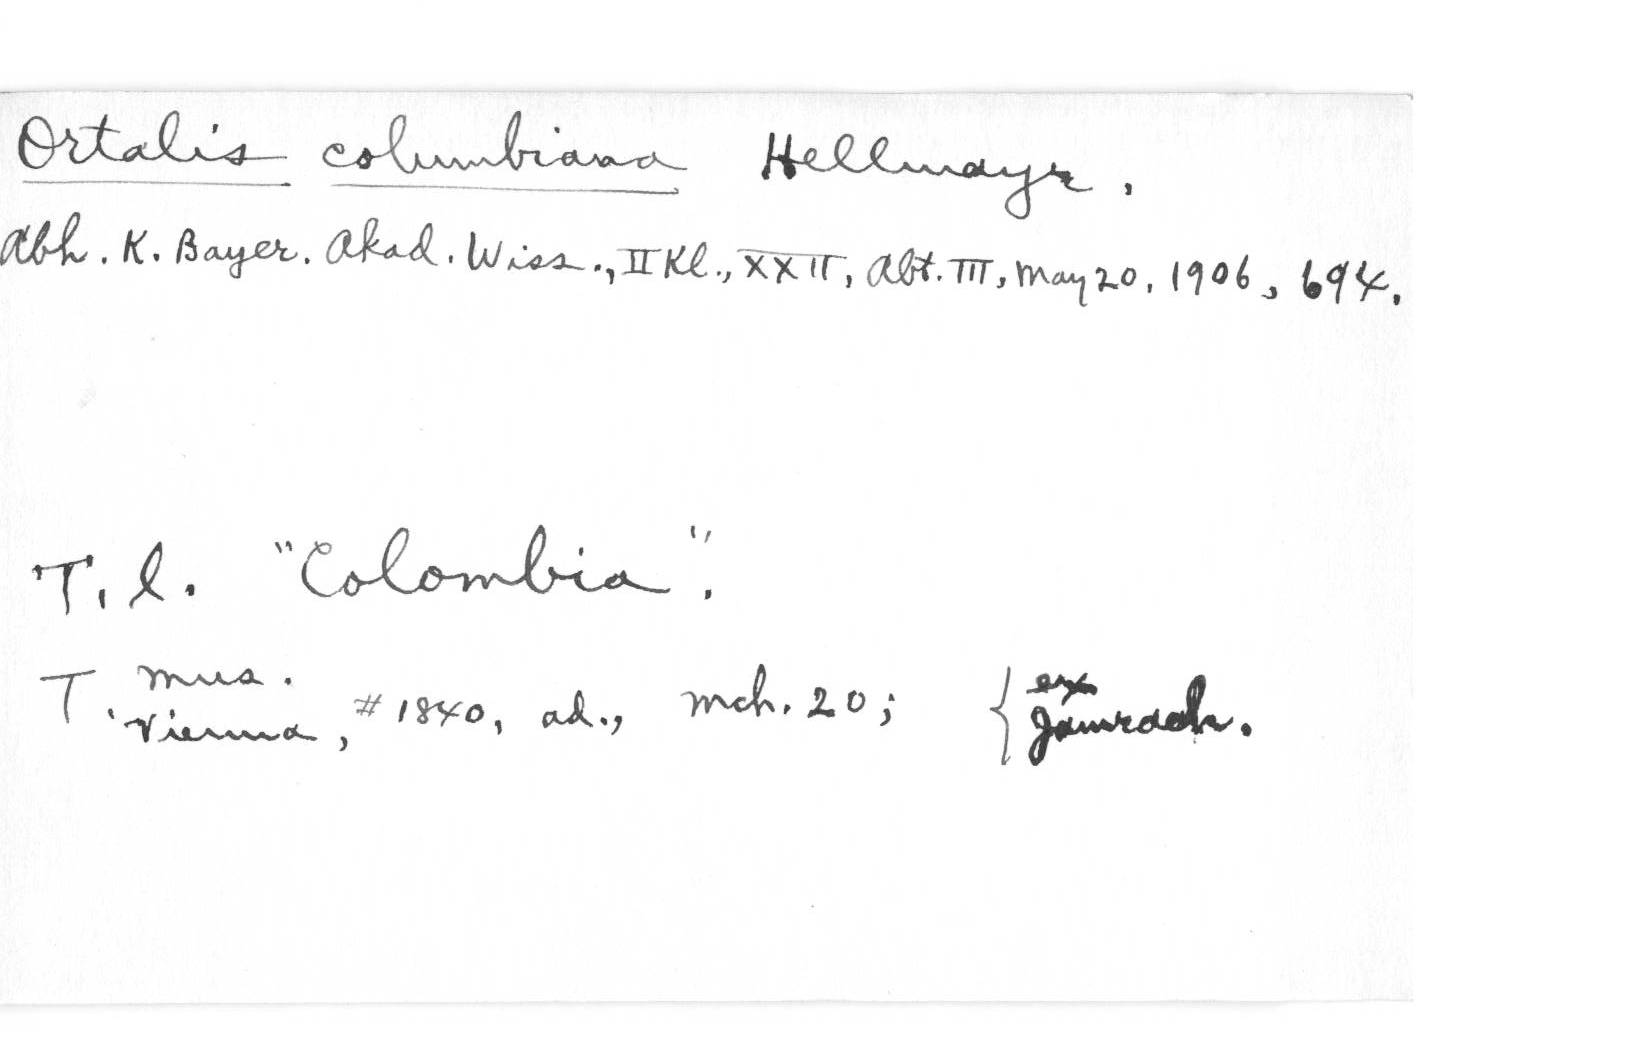 Ortalis columbiana Hellmayr.
Abh. K. Bayer. Akad. Wiss., II Kl., XXII, Abt. III, May 20, 1906, 694.
T. l. "Colombia".
T. Mus. Vienna, #1840, ad., Mch. 20; { ex Jamrach.